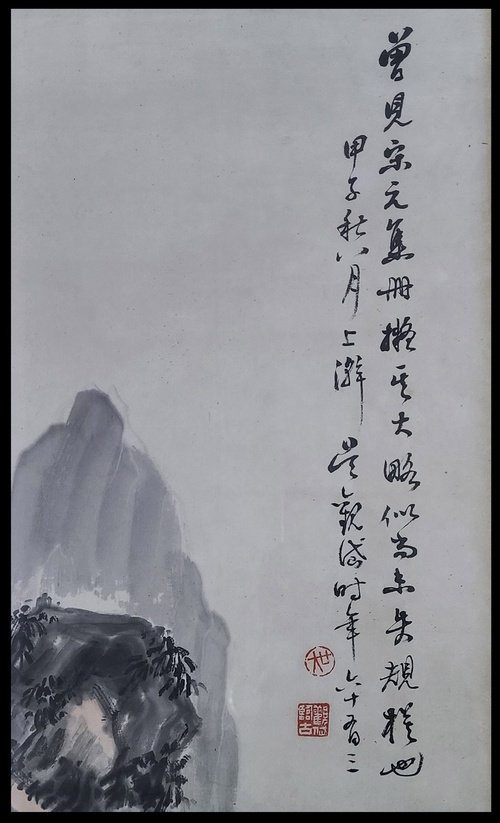 曾見宋元集冊擬其大略似尚未失規模也
甲子秋八月上澣 吳觀岱時年六十有三